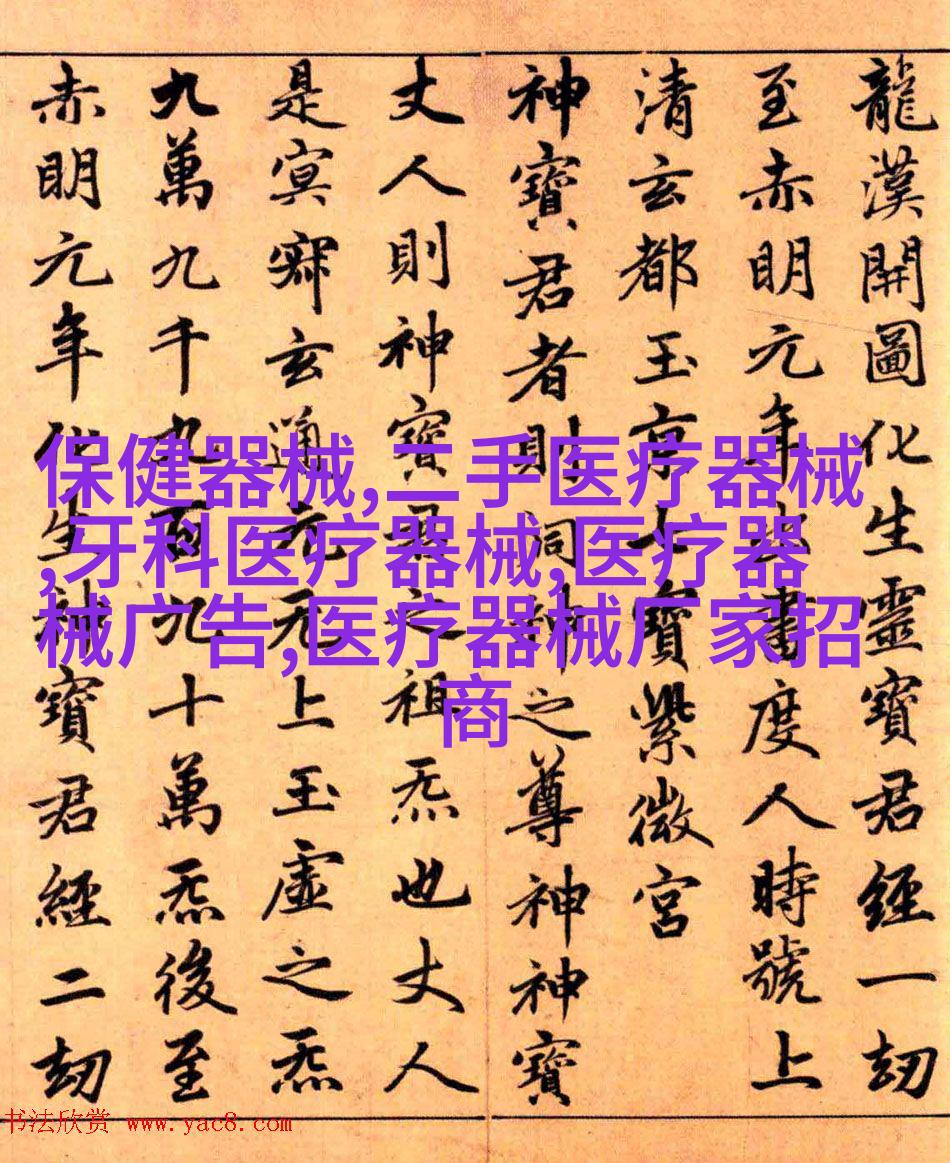 龍漢開圖化生靈寶君經一劫
至赤明元年出書度人時號上
清玄都玉京七寶紫微宮
神寶君者則洞神之尊神神寶
丈人則神寶君之祖炁也丈人
是冥寂玄通元无上玉虛之炁
九萬九千九百九十萬炁後至
赤明元年化生神寶君經二劫
保健器械,二手医疗器械
,牙科医疗器械,医疗器
械广告,医疗器械厂家招
商
书法欣赏 www.yac8.com